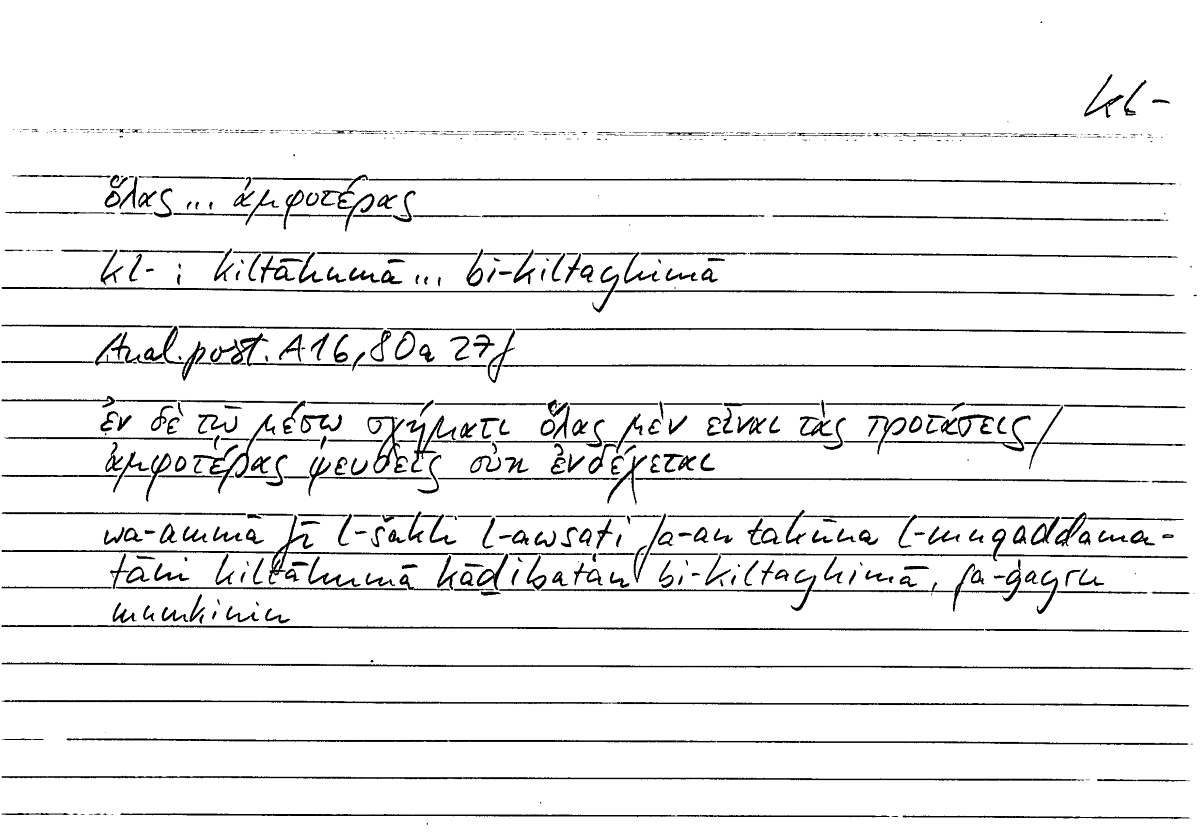 kl-
ὅλας ... ἀμφοτέρας
kl- : kiltāhumā ... bi-kiltayhimā
Anal. post. A 16, 80a 27f
ἐν δὲ τῷ μέσῳ σχήματι ὅλας μὲν εἶναι τὰς προτάσεις /
ἀμφοτέρας ψευδεῖς οὐκ ἐνδέχεται
wa-ammā fī l-šakli l-awsaṭi fa-an takūna l-muqaddama-
tāni kiltāhumā kāḏibatān bi-kiltayhimā, fa-ġayru
mumkinin